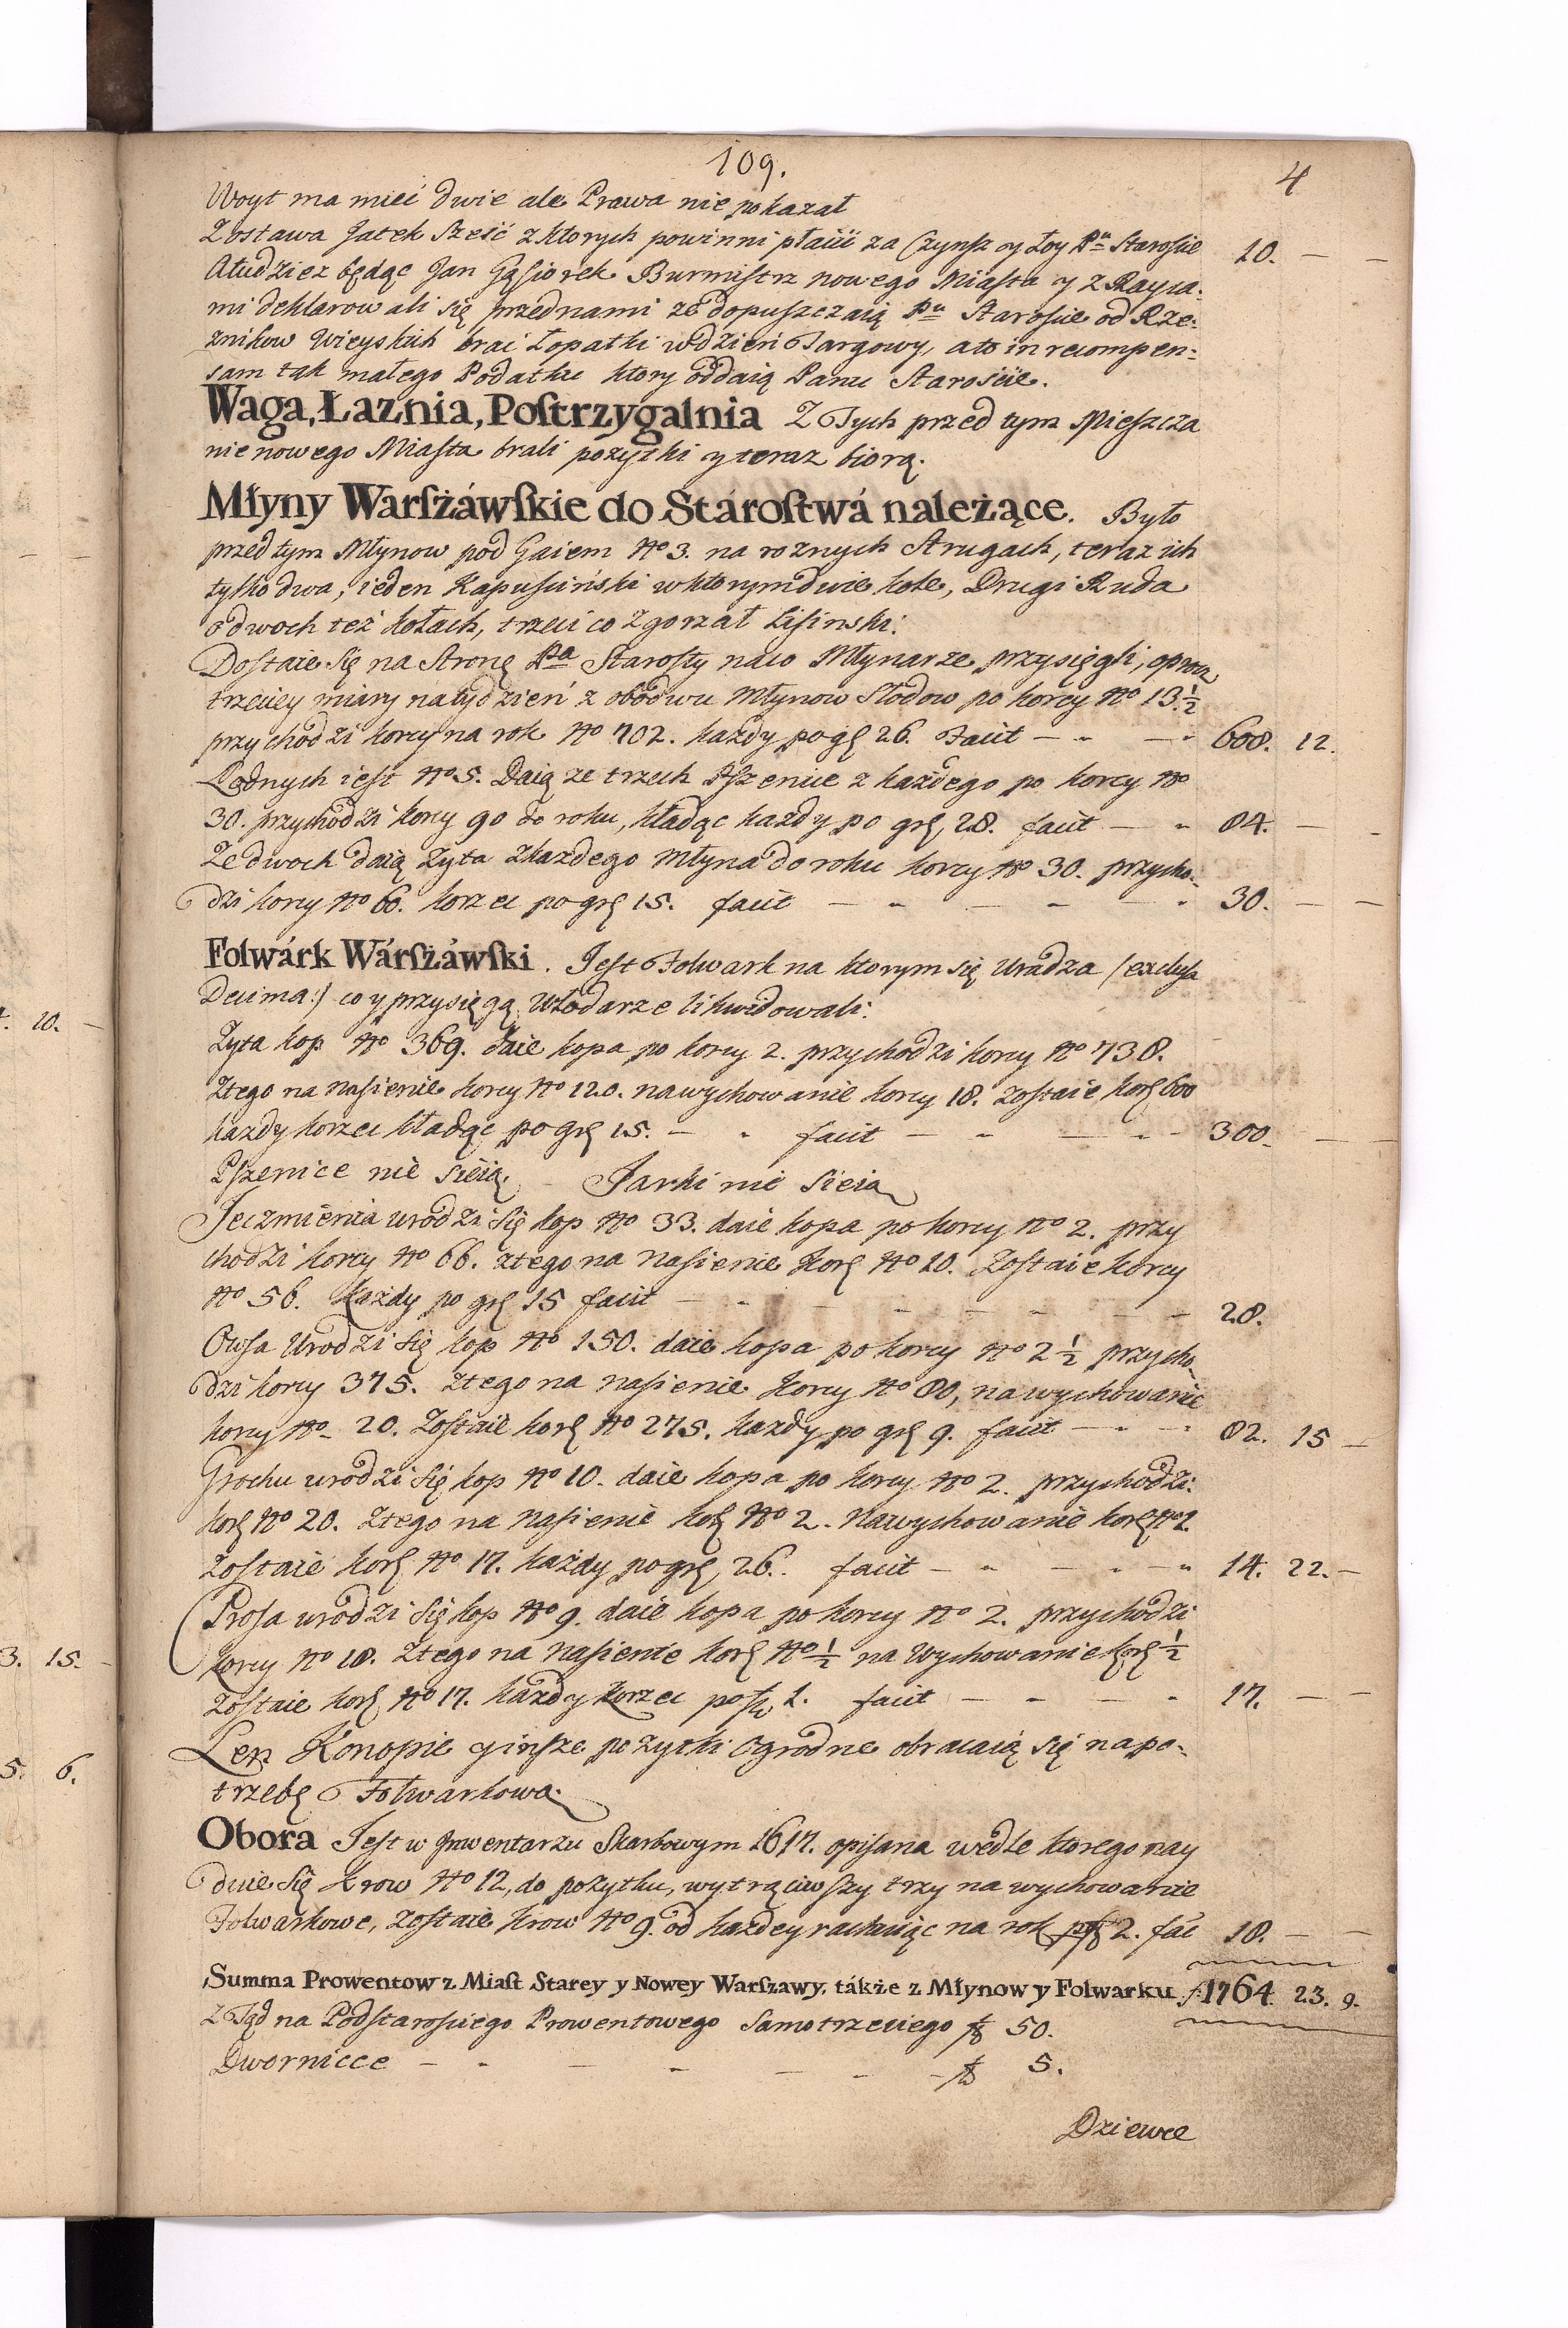 109.
4
Woyt ma mieć dwie ale Prawa nie pokazał
Zostawa Jatek Sześć z ktorych powinni płacić za Czynsz y Łoy Pu Starosćie 10. — —
Atudziez będąc Jan Gąsiorek Burmistrz nowego Miasta y z Rayca-
mi deklarowali się przednami ze dopuszczaią Pu Starosćie od Rze-
znikow Wieyskich brać Łopatki wdzień Targowy, a to in recompen-
sam tak małego Podatku ktory oddaią Panu Starośćie.
Waga, Łaznia, Postrzygalnia Z Tych przed tym Mieszcza
nie nowego Miasta brali pożytki y teraz biorą.
Młyny Warszáwskie do Stárostwá należące. Było
przed tym Młynow pod Gaiem No 3. na roznych Strugach, teraz ich
tylko dwa, ieden Kapuściński w ktorym dwie kole, Drugi Ruda
o dwoch też kołach, trzeci co zgorzał Lisinski.
Dostaie się na Stronę Pa Starosty na co Młynarze przysięgli, oprocz
trzeciey miary na tydzień z obodwu Młynow Słodow po korcy No 13.½
przychodzi korcy na rok No 702. kazdy po gę 26. Facit — - — - 608. 12.
Łodnych iest No 5. Daią ze trzech Pszenice z każdego po korcy No
30. przychodzi korcy 90 do roku, kładąc kazdy po grę 28. facit — - 84. — -
Ze dwoch daią zyta z kazdego Młyna do roku korcy No 30. przycho-
dzi korcy No 60. korzec po grę 15. facit — - — - — - 30. — —
Folwárk Wárszáwski. Jest Folwark na ktorym się Uradza /exclusa
Decima:/ co y przysięgą Włodarze likwidowali:
Zyta kop No 369. daie kopa po korcy 2. przychodzi korcy No 738.
Ztego na nasienie korcy No 120. na wychowanie korcy 18. zostaie korę 600
kazdy korzec kładąc po grę 15. — - facit — - — - - 300. — —
Pszenice nie sieią. Jarki nie sieią
Jęczmienia urodzi się kop No 33. daie kopa po korcy No 2. przy
chodzi korcy No 66. ztego na nasienie korę No 10. Zostaie korcy
No 56. każdy po grę 15 facit — - — - — - — 28.
Owsa Urodzi się kop No 150. daie kopa po korcy No 2½ przycho-
dzi korcy 375. ztego na nasienie korcy No 80, na wychowanie
korcy No 20. Zostaie korę No 275. kazdy po grę 9. facit — - — - 82. 15 —
Grochu urodzi się kop No 10. daie kopa po korcy No 2. przychodzi
korę No 20. Ztego na nasienie korę No 2. Nawychowanie korę No 1.
zostaie korę No 17. każdy po grę 26. facit — - — - — - 14. 22. —
Prosa urodzi się kop No 9. daie kopa po korcy No 2. przychodzi
korcy No 18. Ztego na nasienie korę No ½ na Wychowanie korę ½
zostaie korę No 17. każdy korzec po f 1. facit — - — - 17. — —
Len Konopie y insze pozytki Ogrodne obracaią się na po-
trzebę Folwarkową.
Obora Jest w Inwentarzu Skarbowym 1617. opisana wedle ktorego nay
duie się krow No 12, do pożytku, wytrąciwszy trzy na wychowanie
Folwarkowe, zostaie krow No 9. od kazdey rachuiąc na rok po f 2. fac 18. — —
Summa Prowentow z Miast Starey y Nowey Warszawy, tákże z Młynow y Folwarku f 1764. 23. 9.
Z Tąd na Podstarosćiego Prowentowego Samotrzeciego f 50.
Dwornicce — - — - — - — f 5.
Dziewce
t. 10. —
3. 15. —
5. 6.